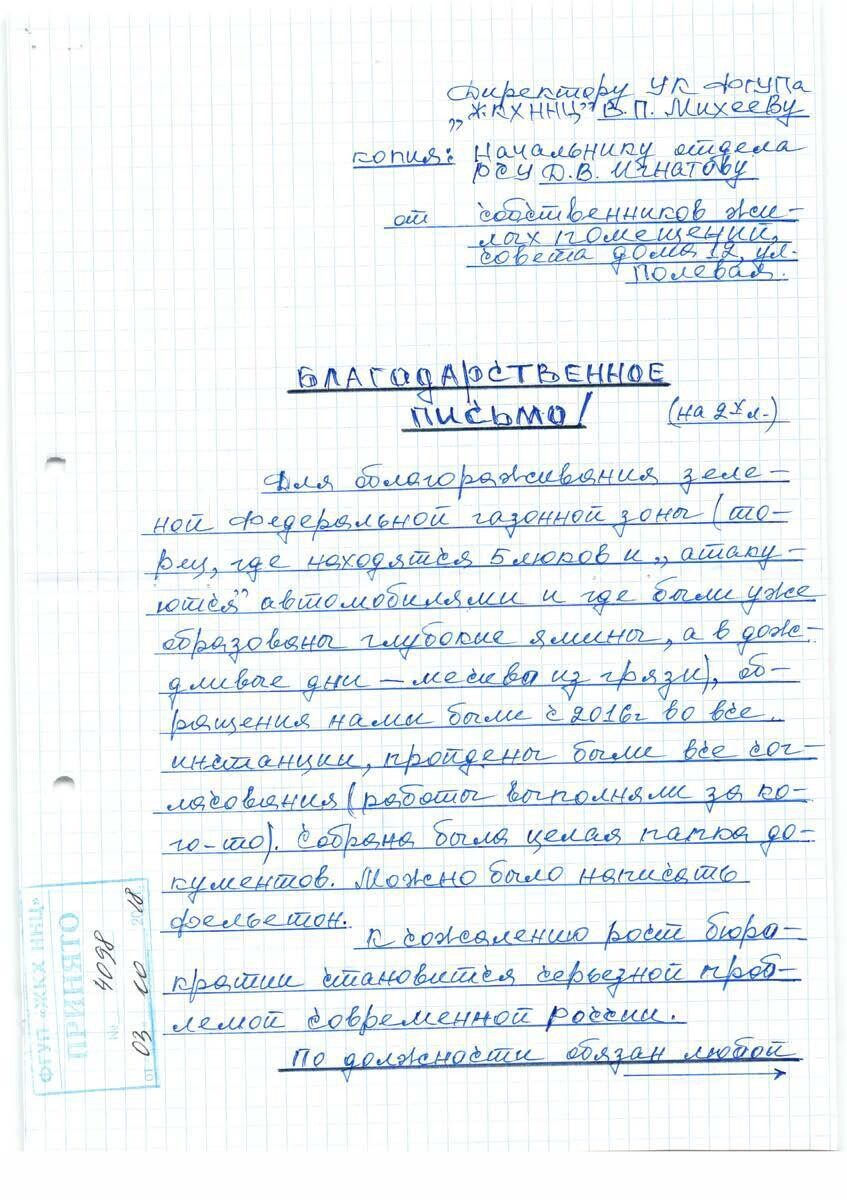 Директору УК ФГУПа
„ЖКХ ННЦ" В.П. Михееву
копия: Начальнику отдела
РСУ Д.В. Игнатову
от собственников жи-
лых помещений,
совета дома 12, ул.
Полевая.
БЛАГОДАРСТВЕННОЕ
ПИСЬМО!
(на 2х л.)
Для облагораживания зеле-
ной федеральной газонной зоны (то-
рец, где находятся 5 люков и „атаку-
ются" автомобилями и где были уже
образованы глубокие ямины, а в дож-
дливые дни – месиво из грязи), об-
ращения нами были с 2016г во все
инстанции, пройдены были все сог-
ласования (работы выполняли за ко-
го-то). Собрана была целая папка до-
кументов. Можно было написать
фельетон.
К сожалению рост бюро-
кратии становится серьезной проб-
лемой современной России.
По должности обязан любой
ФГУП «ЖКХ ННЦ»
ПРИНЯТО
№ 4098
от 03 10 2018